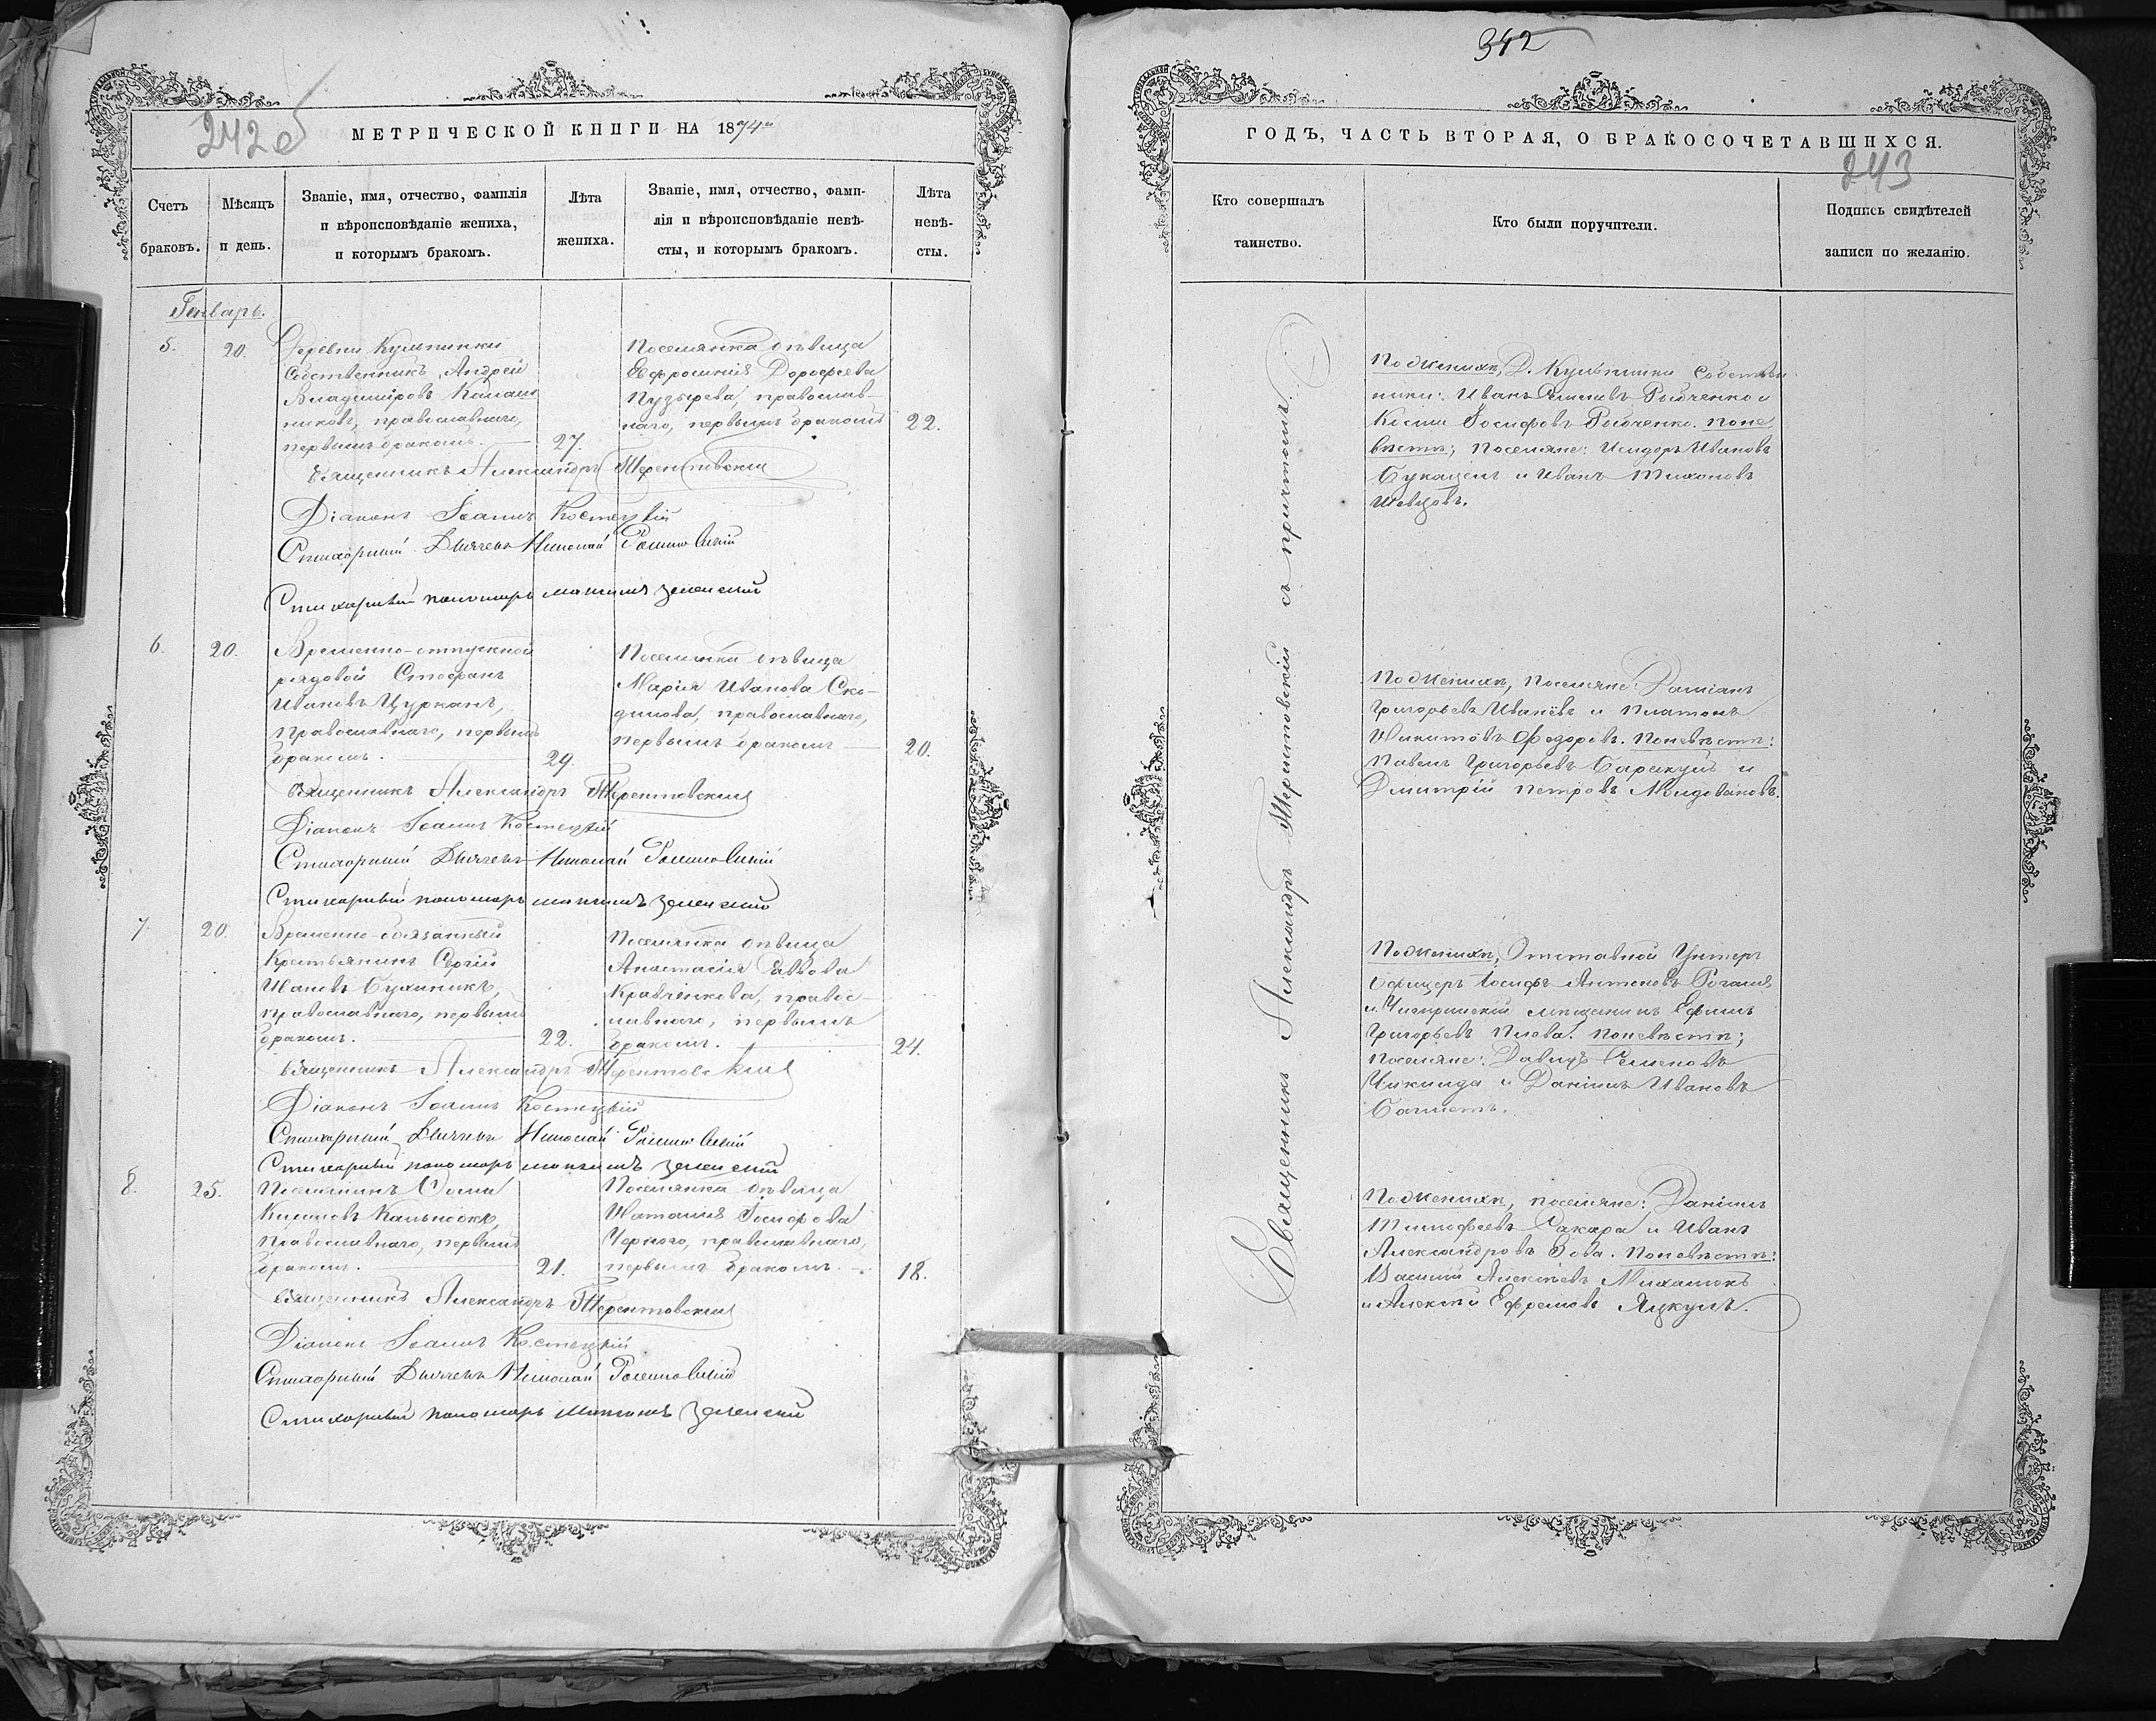 242 об
МЕТРИЧЕСКОЙ КНИГИ НА 1874й
Счетъ браковъ.
Мѣсяцъ и день.
Званіе, имя, отчество, фамилія
и вѣроисповѣданіе жениха,
и которымъ бракомъ.
Лѣта жениха.
Званіе, имя, отчество, фами-
лія и вѣроисповѣданіе невѣ-
сты, и которымъ бракомъ.
Лѣта невѣ-
сты.
Генварь.
5.
20.
Деревни Кульпинки
Собственникъ, Андрей
Владиміровъ
никовъ, православнаго,
первымъ бракомъ.
27.
Поселянка дѣвица
Евфросинія Дорофеева
Пузырева, православ-
наго, первымъ бракомъ
22.
Священникъ Александръ Терентовскій
Діаконъ Іоаннъ Костецкій
Стихарный Дьячекъ Николай
Стихарный пономарь Максимъ Зеленскій
6.
20.
Временно-отпускной
рядовой Стефанъ
Ивановъ Цурканъ,
православнаго, первымъ
бракомъ.
29.
Поселянка дѣвица
Марія Иванова Ско-
динова, православнаго,
первымъ бракомъ
20.
Священникъ Александръ Терентовскій
Діаконъ Іоаннъ Костецкій
Стихарный Дьячекъ Николай
Стихарный пономарь Максимъ Зеленскій
7.
20.
Временно-обязанный
Крестьянинъ Сергій
Ивановъ
православнаго, первымъ
бракомъ.
22.
Поселянка дѣвица
Анастасія Саввова
Кравченкова, правос-
лавнаго, первымъ
бракомъ.
24.
Священникъ Александръ Терентовскій
Діаконъ Іоаннъ Костецкій
Стихарный Дьячекъ Николай
Стихарный пономарь Максимъ Зеленскій
8.
25.
Поселянинъ Ѳома
православнаго, первымъ
бракомъ.
21.
Поселянка дѣвица
Наталія Іосифова
Чернаго, православнаго,
первымъ бракомъ.
18.
Священникъ Александръ Терентовскій
Діаконъ Іоаннъ Костецкій
Стихарный Дьячекъ Николай
Стихарный пономарь Максимъ Зеленскій
342
ГОДЪ, ЧАСТЬ ВТОРАЯ, О БРАКОСОЧЕТАВШИХСЯ.
243
Кто совершалъ
таинство.
Кто были поручители.
Подпись свидѣтелей
записи по желанію.
Священникъ Александръ Терентовскій съ причтомъ.
По женихѣ, Д. Кульпинки Собствен-
ники: Иванъ и
Косма Іосифовъ По не
вѣстѣ; поселяне: Исидоръ Ивановъ
и Иванъ Тихоновъ
Шевцовъ.
По женихѣ, поселяне: Даміанъ
Григорьевъ Ивановъ и Платонъ
Никитовъ Федоровъ. По невѣстѣ:
Павелъ Григорьевъ и
Дмитрій Петровъ Молдовановъ.
По женихѣ, Отставной Унтеръ
Офицеръ Іосифъ Антоновъ
и Чигиринскій мѣщанинъ Ефимъ
Григорьевъ По невѣстѣ;
поселяне: Давидъ Семеновъ
и Даніилъ Ивановъ
По женихѣ, поселяне: Даніилъ
Тимофеевъ Сахара и Иванъ
Александровъ Зова. По невѣстѣ:
Василій Алексѣевъ
и Алексѣй Ефремовъ Яцкулъ.